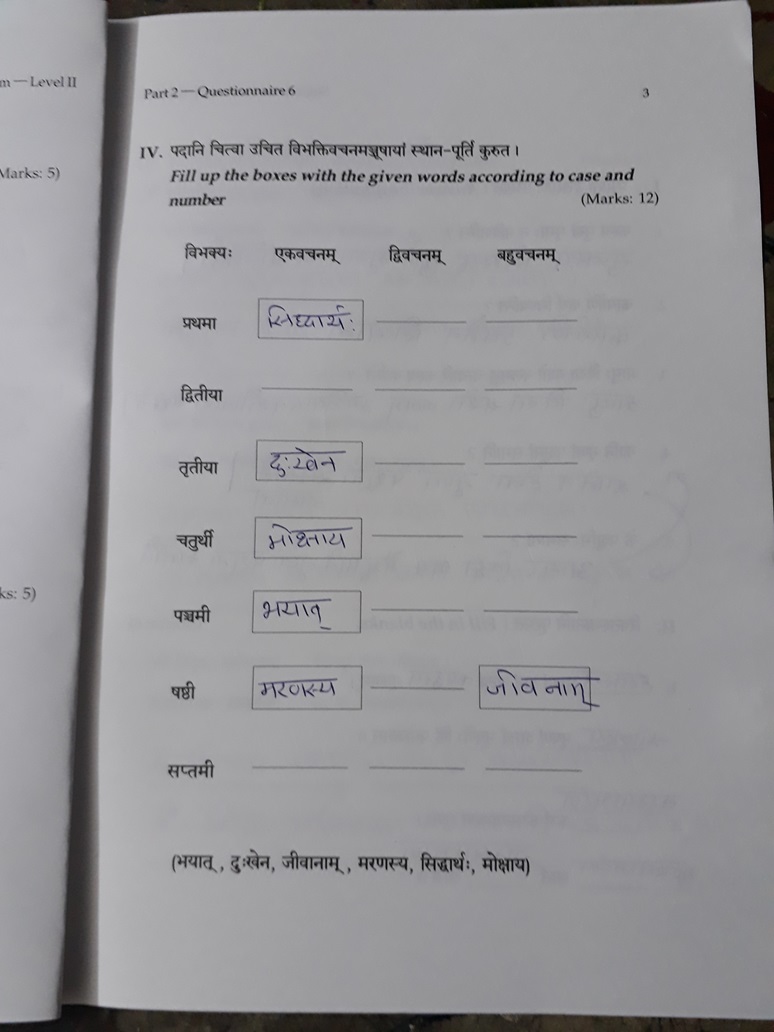 m — Level II
Part 2 — Questionnaire 6 3
Marks: 5)
IV. पदानि चित्वा उचित विभक्तिवचनमञ्जूषायां स्थान-पूर्ति कुरुत ।
Fill up the boxes with the given words according to case and
number (Marks: 12)
विभक्यः एकवचनम् द्विवचनम् बहुवचनम्
प्रथमा सिध्दार्थः
द्वितीया
तृतीया दुःखेन
चतुर्थी मोक्षाय
ks: 5)
पञ्चमी भयात्
षष्ठी मरणस्य जीवनाम्
सप्तमी
(भयात् , दुःखेन, जीवानाम् , मरणस्य, सिद्धार्थः, मोक्षाय)